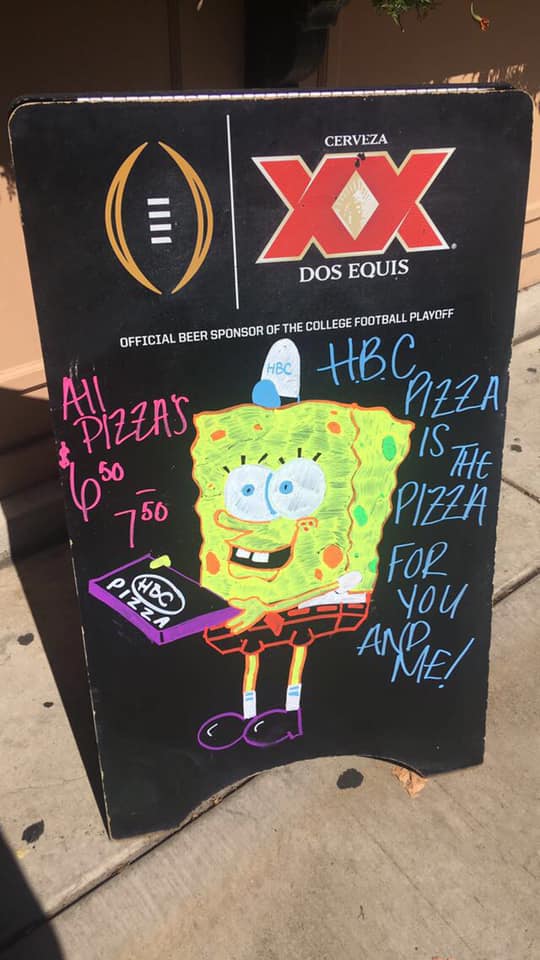 CERVEZA
XX
DOS EQUIS
OFFICIAL BEER SPONSOR OF THE COLLEGE FOOTBALL PLAYOFF
All
PIZZA'S
$6 50 -
7 50
HBC
HBC
PIZZA
H.B.C.
PIZZA
IS
THE
PIZZA
FOR
YOU
AND
ME!